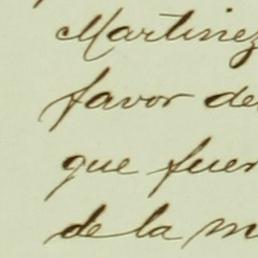 Martinez
favor de
que fuer
de la m